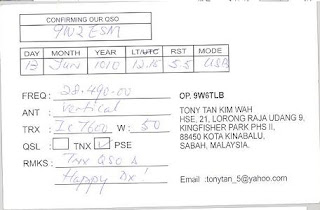 CONFIRMING OUR QSO
9W2ESM
DAY MONTH YEAR LT/UTC RST MODE
13 Jun 1010 12.15 55 USB
FREQ : 28.490.00
OP. 9W6TLB
ANT : Vertical
TONY TAN KIM WAH
TRX : Ic 7600 W : 50
HSE, 21, LORONG RAJA UDANG 9,
KINGFISHER PARK PHS II,
QSL : TNX PSE
88450 KOTA KINABALU,
SABAH, MALAYSIA.
RMKS : Tnx QSO &
Happy Dx!
Email :tonytan_5@yahoo.com